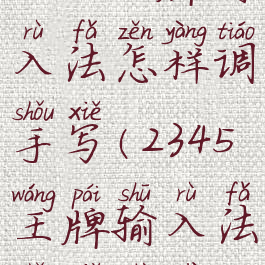 rù fǎ zěn yàng tiáo
入法怎样调
shǒu xiě
手写(2345
wáng pái shū rù fǎ
王牌输入法